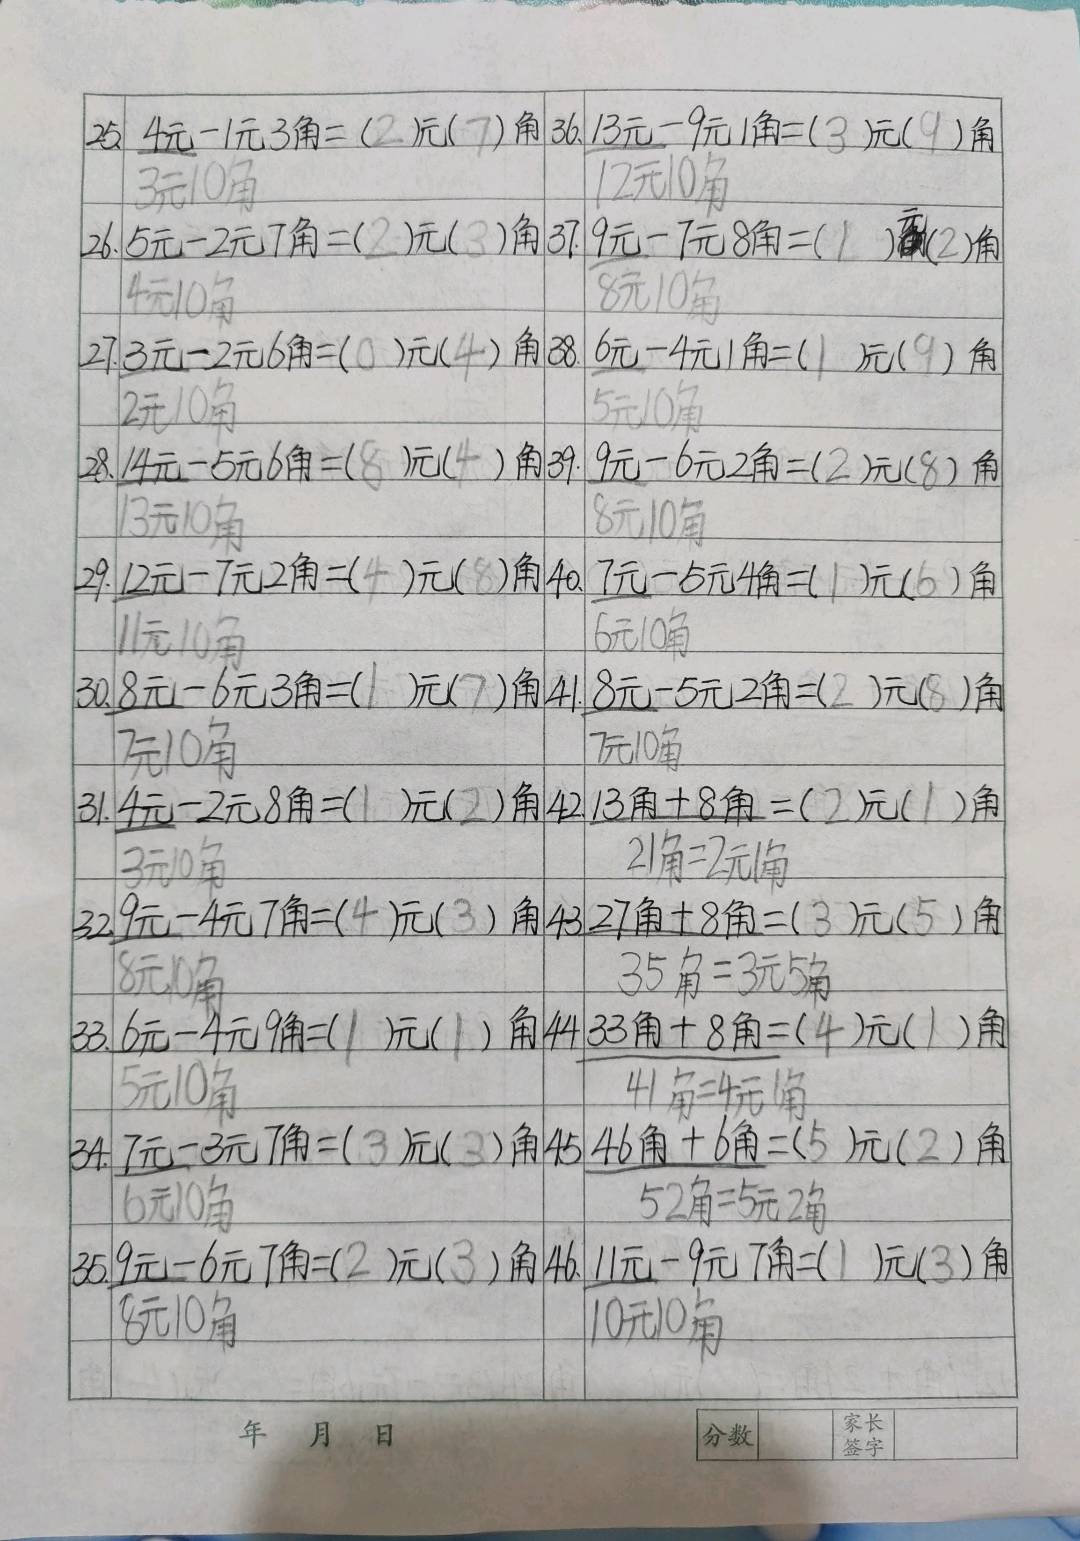 25. 4元-1元3角=(2)元(7)角
3元10角
26. 5元-2元7角=(2)元(3)角
4元10角
27. 3元-2元6角=(0)元(4)角
2元10角
28. 14元-5元6角=(8)元(4)角
13元10角
29. 12元-7元2角=(4)元(8)角
11元10角
30. 8元-6元3角=(1)元(7)角
7元10角
31. 4元-2元8角=(1)元(2)角
3元10角
32. 9元-4元7角=(4)元(3)角
8元10角
33. 6元-4元9角=(1)元(1)角
5元10角
34. 7元-3元7角=(3)元(3)角
6元10角
35. 9元-6元7角=(2)元(3)角
8元10角
36. 13元-9元1角=(3)元(9)角
12元10角
37. 9元-7元8角=(1)元(2)角
8元10角
38. 6元-4元1角=(1)元(9)角
5元10角
39. 9元-6元2角=(2)元(8)角
8元10角
40. 7元-5元4角=(1)元(6)角
6元10角
41. 8元-5元2角=(2)元(8)角
7元10角
42. 13角+8角=(2)元(1)角
21角=2元1角
43. 27角+8角=(3)元(5)角
35角=3元5角
44. 33角+8角=(4)元(1)角
41角=4元1角
45. 46角+6角=(5)元(2)角
52角=5元2角
46. 11元-9元7角=(1)元(3)角
10元10角
年 月 日
分数
家长
签字